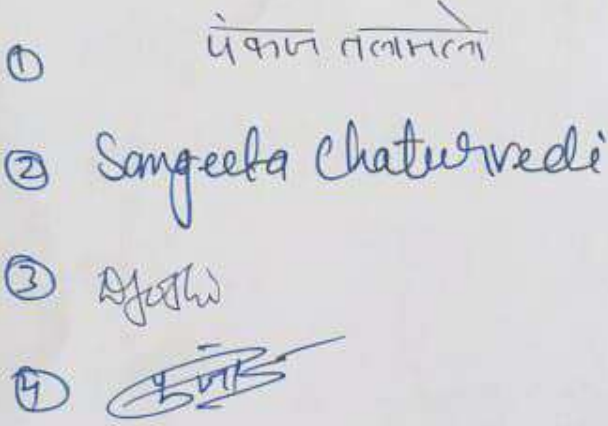 ① पंकज तलामले
② Sangeeta Chaturvedi
③ DJoshi
④